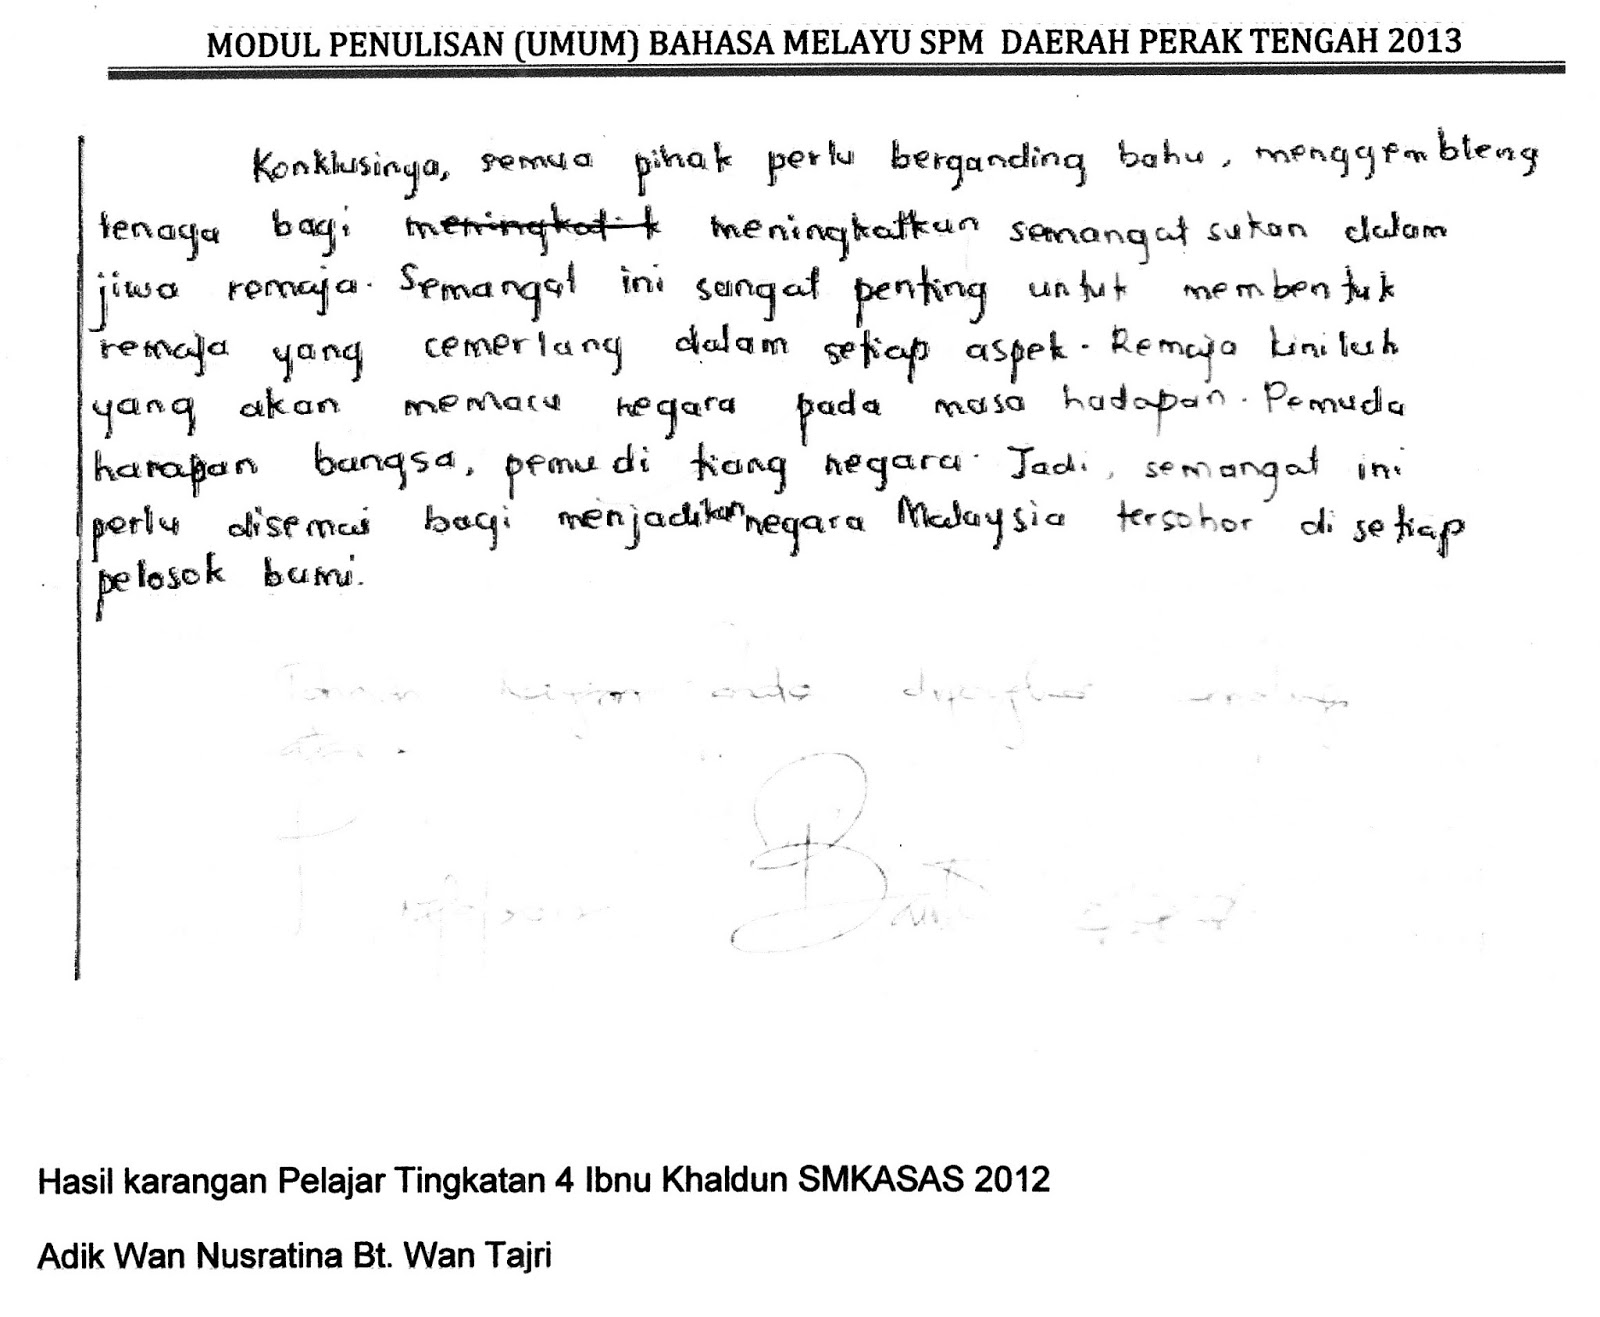 MODUL PENULISAN (UMUM) BAHASA MELAYU SPM DAERAH PERAK TENGAH 2013
Konklusinya, semua pihak perlu berganding bahu, menggembleng
tenaga bagi meningkatk meningkatkan semangat sukan dalam
jiwa remaja. Semangat ini sangat penting untuk membentuk
remaja yang cemerlang dalam setiap aspek. Remaja kinilah
yang akan memacu negara pada masa hadapan. Pemuda
harapan bangsa, pemudi tiang negara. Jadi, semangat ini
perlu disemai bagi menjadikan negara Malaysia tersohor di setiap
pelosok bumi.
Hasil karangan Pelajar Tingkatan 4 Ibnu Khaldun SMKASAS 2012
Adik Wan Nusratina Bt. Wan Tajri